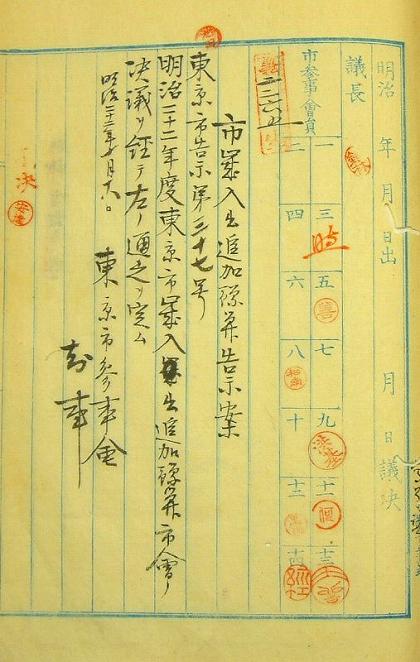 明治 年 月 日出 月 日議決
議長
市参事會員
一 三 五 七 九 十一 十三
二 四 六 八 十 十二 十四
市歳入出追加豫算告示案
東京市告示第三十七号
明治二十二年度東京市歳入出追加豫算市會ノ
決議ヲ経テ左ノ通之ヲ定ム
明治二十二年 月 日
東京市参事會
知事
決